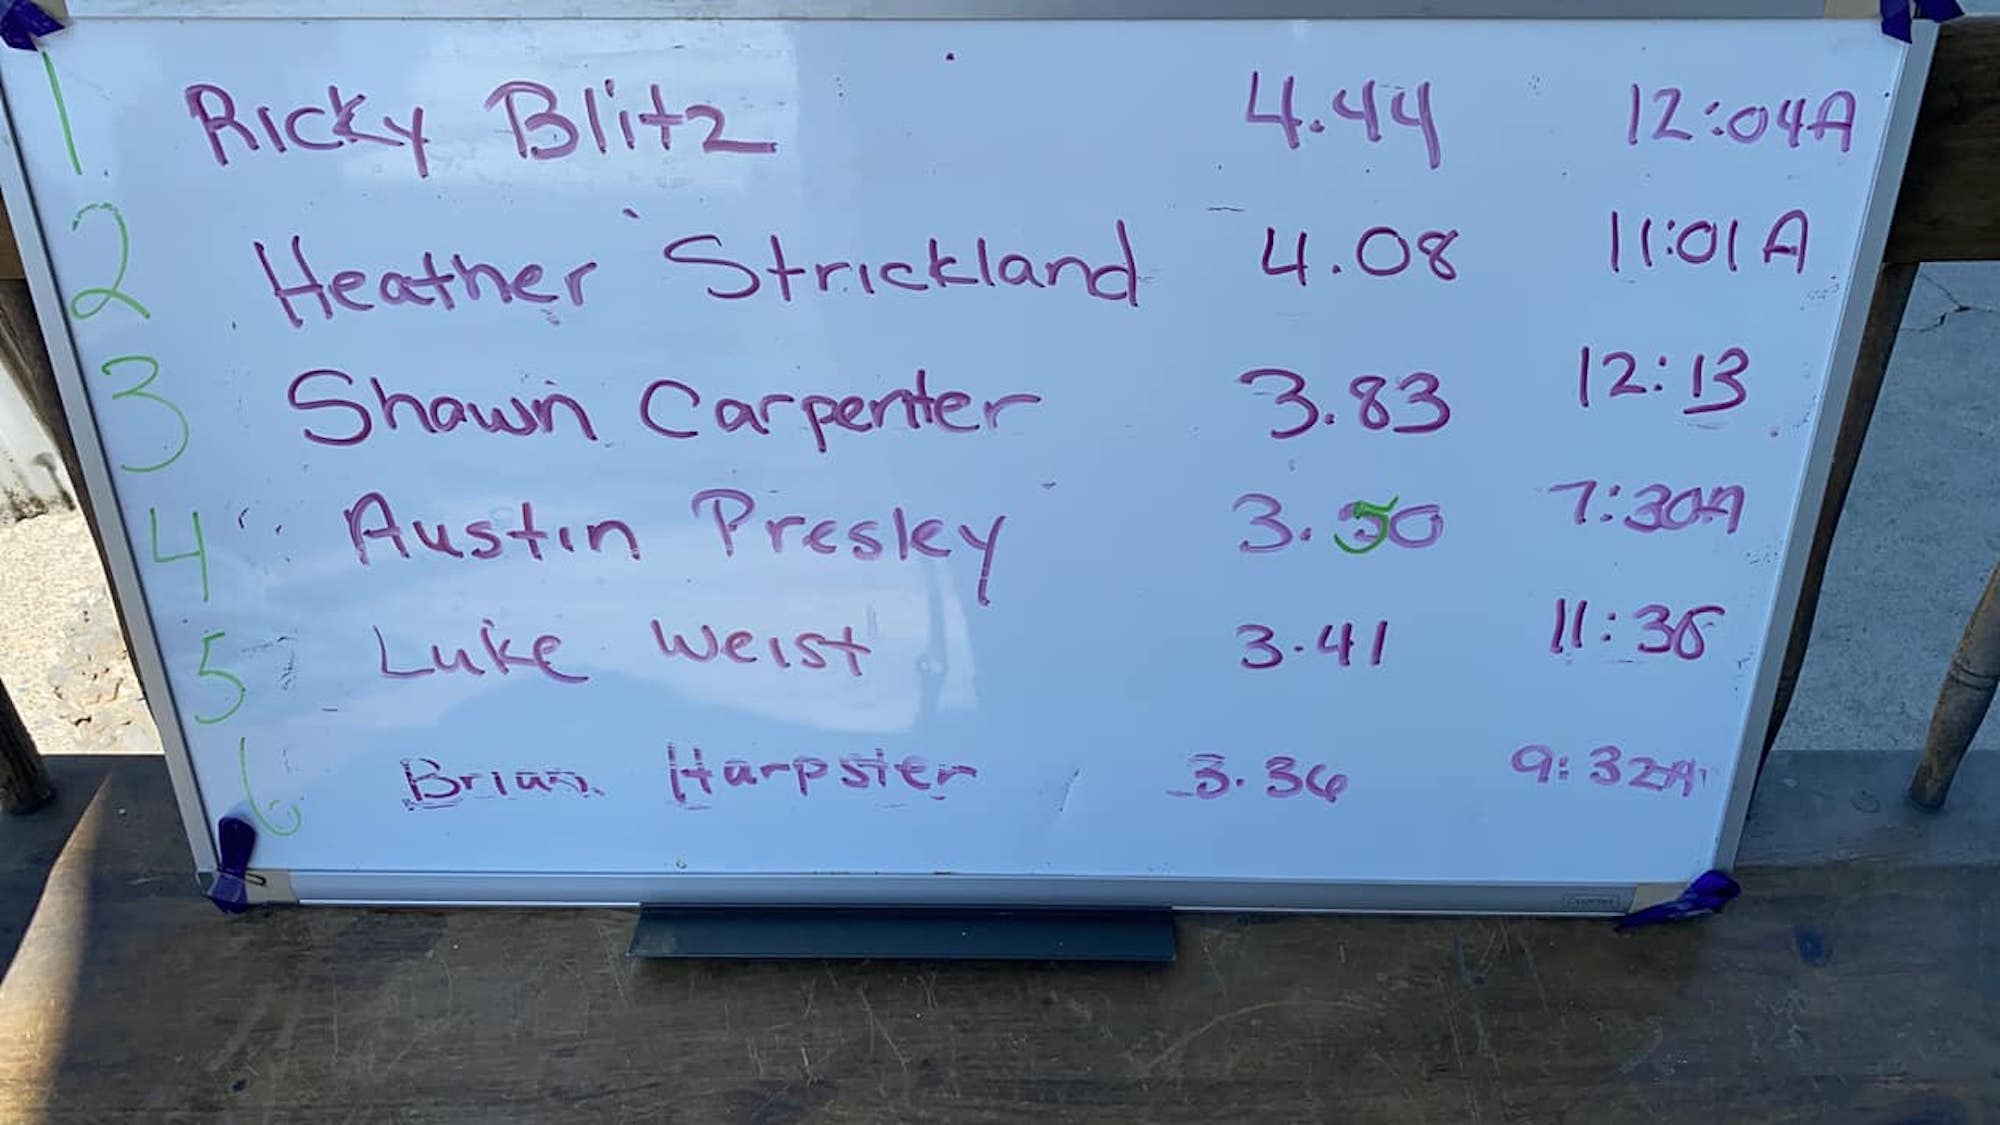 1 Ricky Blitz 4.44 12:04A
2 Heather Strickland 4.08 11:01 A
3 Shawn Carpenter 3.83 12:13
4 Austin Presley 3.50 7:30A
5 Luke Weist 3.41 11:38
6 Brian Harpster 3.36 9:32A